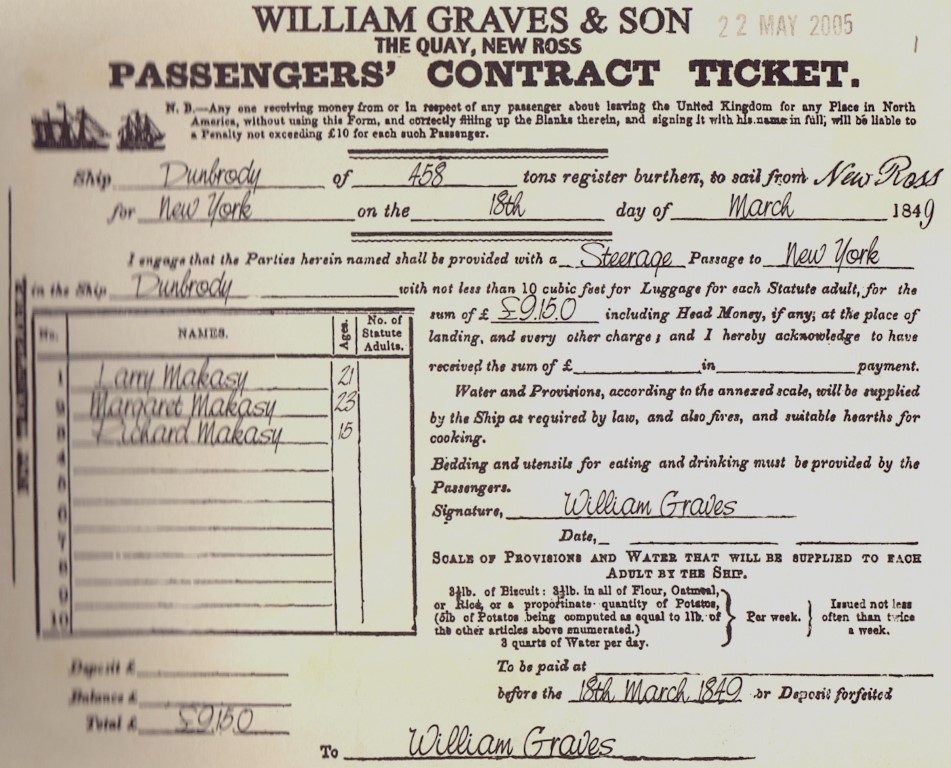 WILLIAM GRAVES & SON
22 MAY 2005
THE QUAY, NEW ROSS
PASSENGERS' CONTRACT TICKET.
N. B.—Any one receiving money from or in respect of any passenger about leaving the United Kingdom for any Place in North
America, without using this Form, and correctly filling up the Blanks therein, and signing it with his name in full, will be liable to
a Penalty not exceeding £10 for each such Passenger.
Ship Dunbrody of 458 tons register burthen, to sail from New Ross
for New York on the 18th day of March 1849
I engage that the Parties herein named shall be provided with a Steerage Passage to New York
in the Ship Dunbrody with not less than 10 cubic feet for Luggage for each Statute adult, for the
sum of £ £9.15.0 including Head Money, if any, at the place of
landing, and every other charge; and I hereby acknowledge to have
received the sum of £ in payment.
Water and Provisions, according to the annexed scale, will be supplied
by the Ship as required by law, and also fires, and suitable hearths for
cooking.
Bedding and utensils for eating and drinking must be provided by the
Passengers.
Signature, William Graves
Date,
No. NAMES. Ages. No. of Statute Adults.
1 Larry Makasy 21
2 Margaret Makasy 23
3 Richard Makasy 15
4
5
6
7
8
9
10
SCALE OF PROVISIONS AND WATER THAT WILL BE SUPPLIED TO EACH
ADULT BY THE SHIP.
3½lb. of Biscuit: 3½lb. in all of Flour, Oatmeal,
or Rice, or a proportinate quantity of Potatos,
(5lb of Potatos being computed as equal to 1lb. of
the other articles above enumerated.)
3 quarts of Water per day.
Per week.
Issued not less
often than twice
a week.
Deposit £
Balance £
Total £ £9.15.0
To be paid at
before the 18th March 1849 or Deposit forfeited
To William Graves